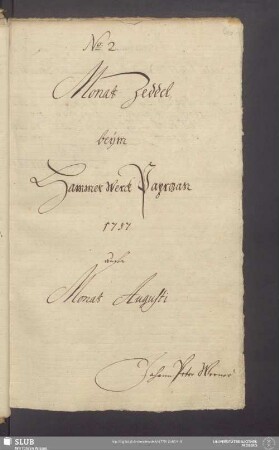 No 2
Monat Zeddel
beÿm
Hammer Werck
1737
Monat Augusti
Johann Peter Werner
SLUB